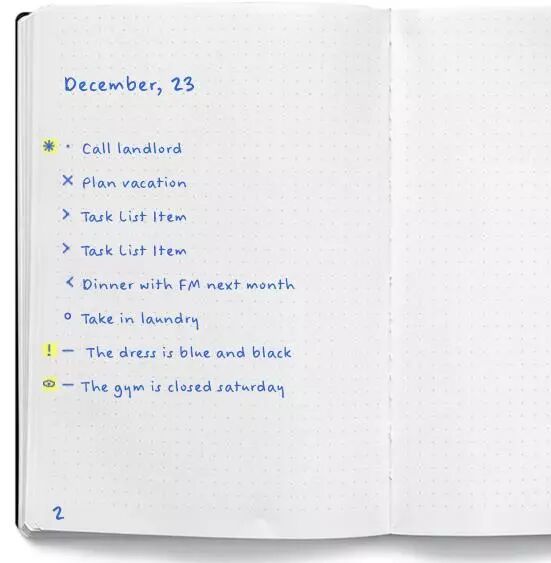 December, 23
* · Call landlord
× Plan vacation
> Task List Item
> Task List Item
< Dinner with FM next month
o Take in laundry
! – The dress is blue and black
– The gym is closed saturday
2